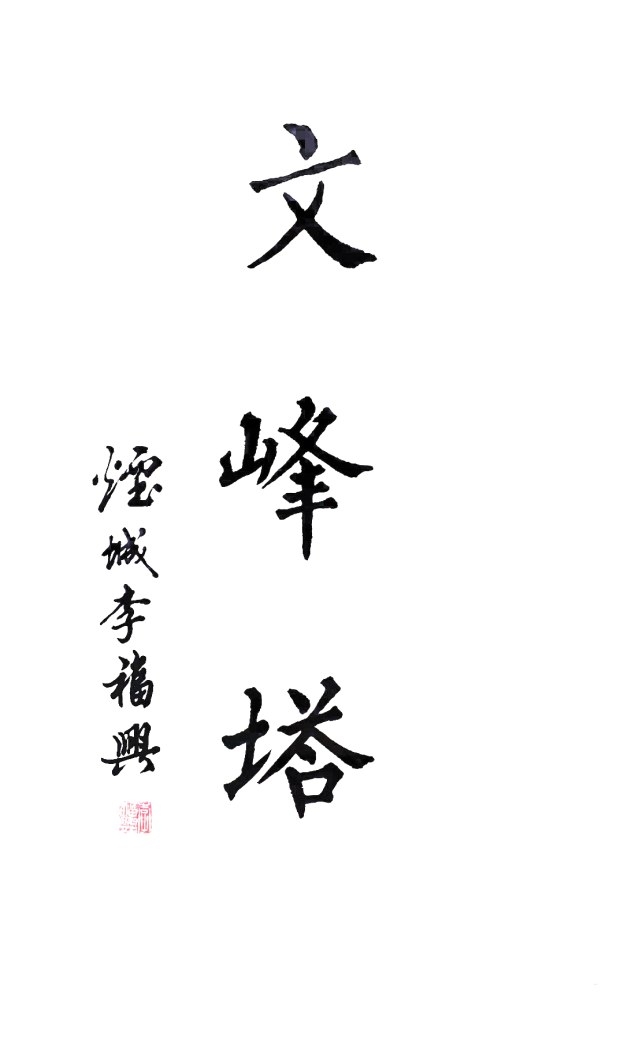 文峰塔
煙城李福興